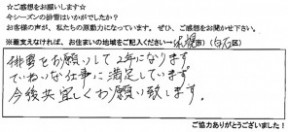 ☆ご感想をお願いします☆
今シーズンの排雪はいかがでしたか？
お客様の声が、私たちの原動力になっています。ぜひ、ご感想をお聞かせ下さい。
※差支えなければ、お住まいの地域をご記入ください→札幌市）（白石区）
排雪をお願いして2年になります
ていねいな仕事に満足しています
今後共宜しくお願い致します。
ご協力ありがとうございました！